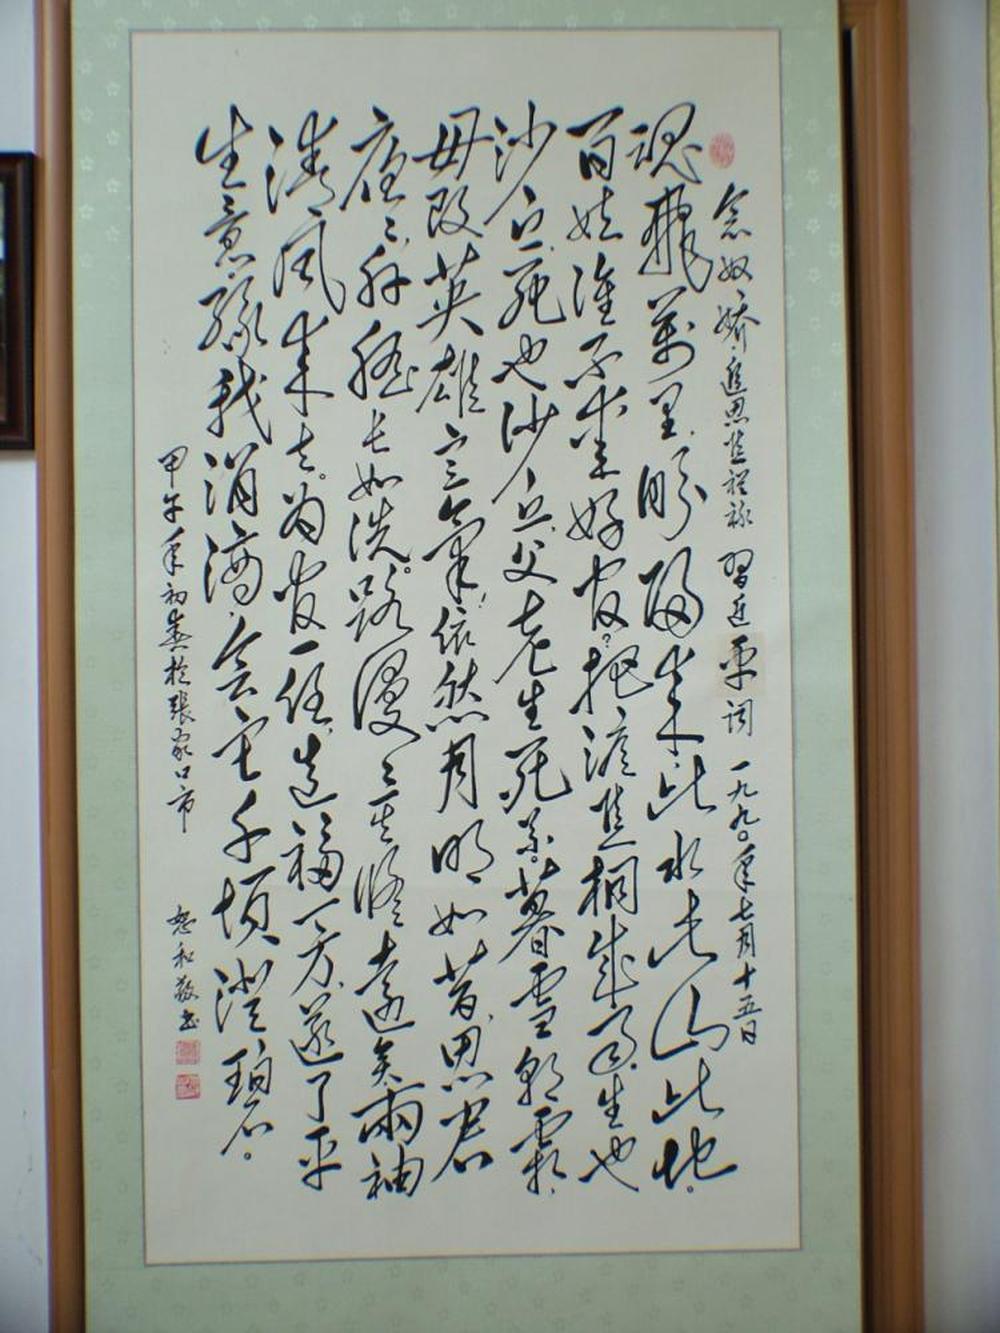 念奴娇·追思焦裕禄 習近平词 一九九〇年七月十五日
魂飛萬里,盼歸来,此水此山此地。
百姓谁不爱好官?把淚焦桐成雨。生也
沙丘,死也沙丘,父老生死系。暮雪朝霜,
毋改英雄意氣!依然月明如昔,思君
夜夜,肝胆长如洗。路漫漫其修遠矣,兩袖
清風来去。为官一任,造福一方,遂了平
生意。绿我涓滴,会它千頃澄碧。
甲午年初於張家口市 恕和敬书